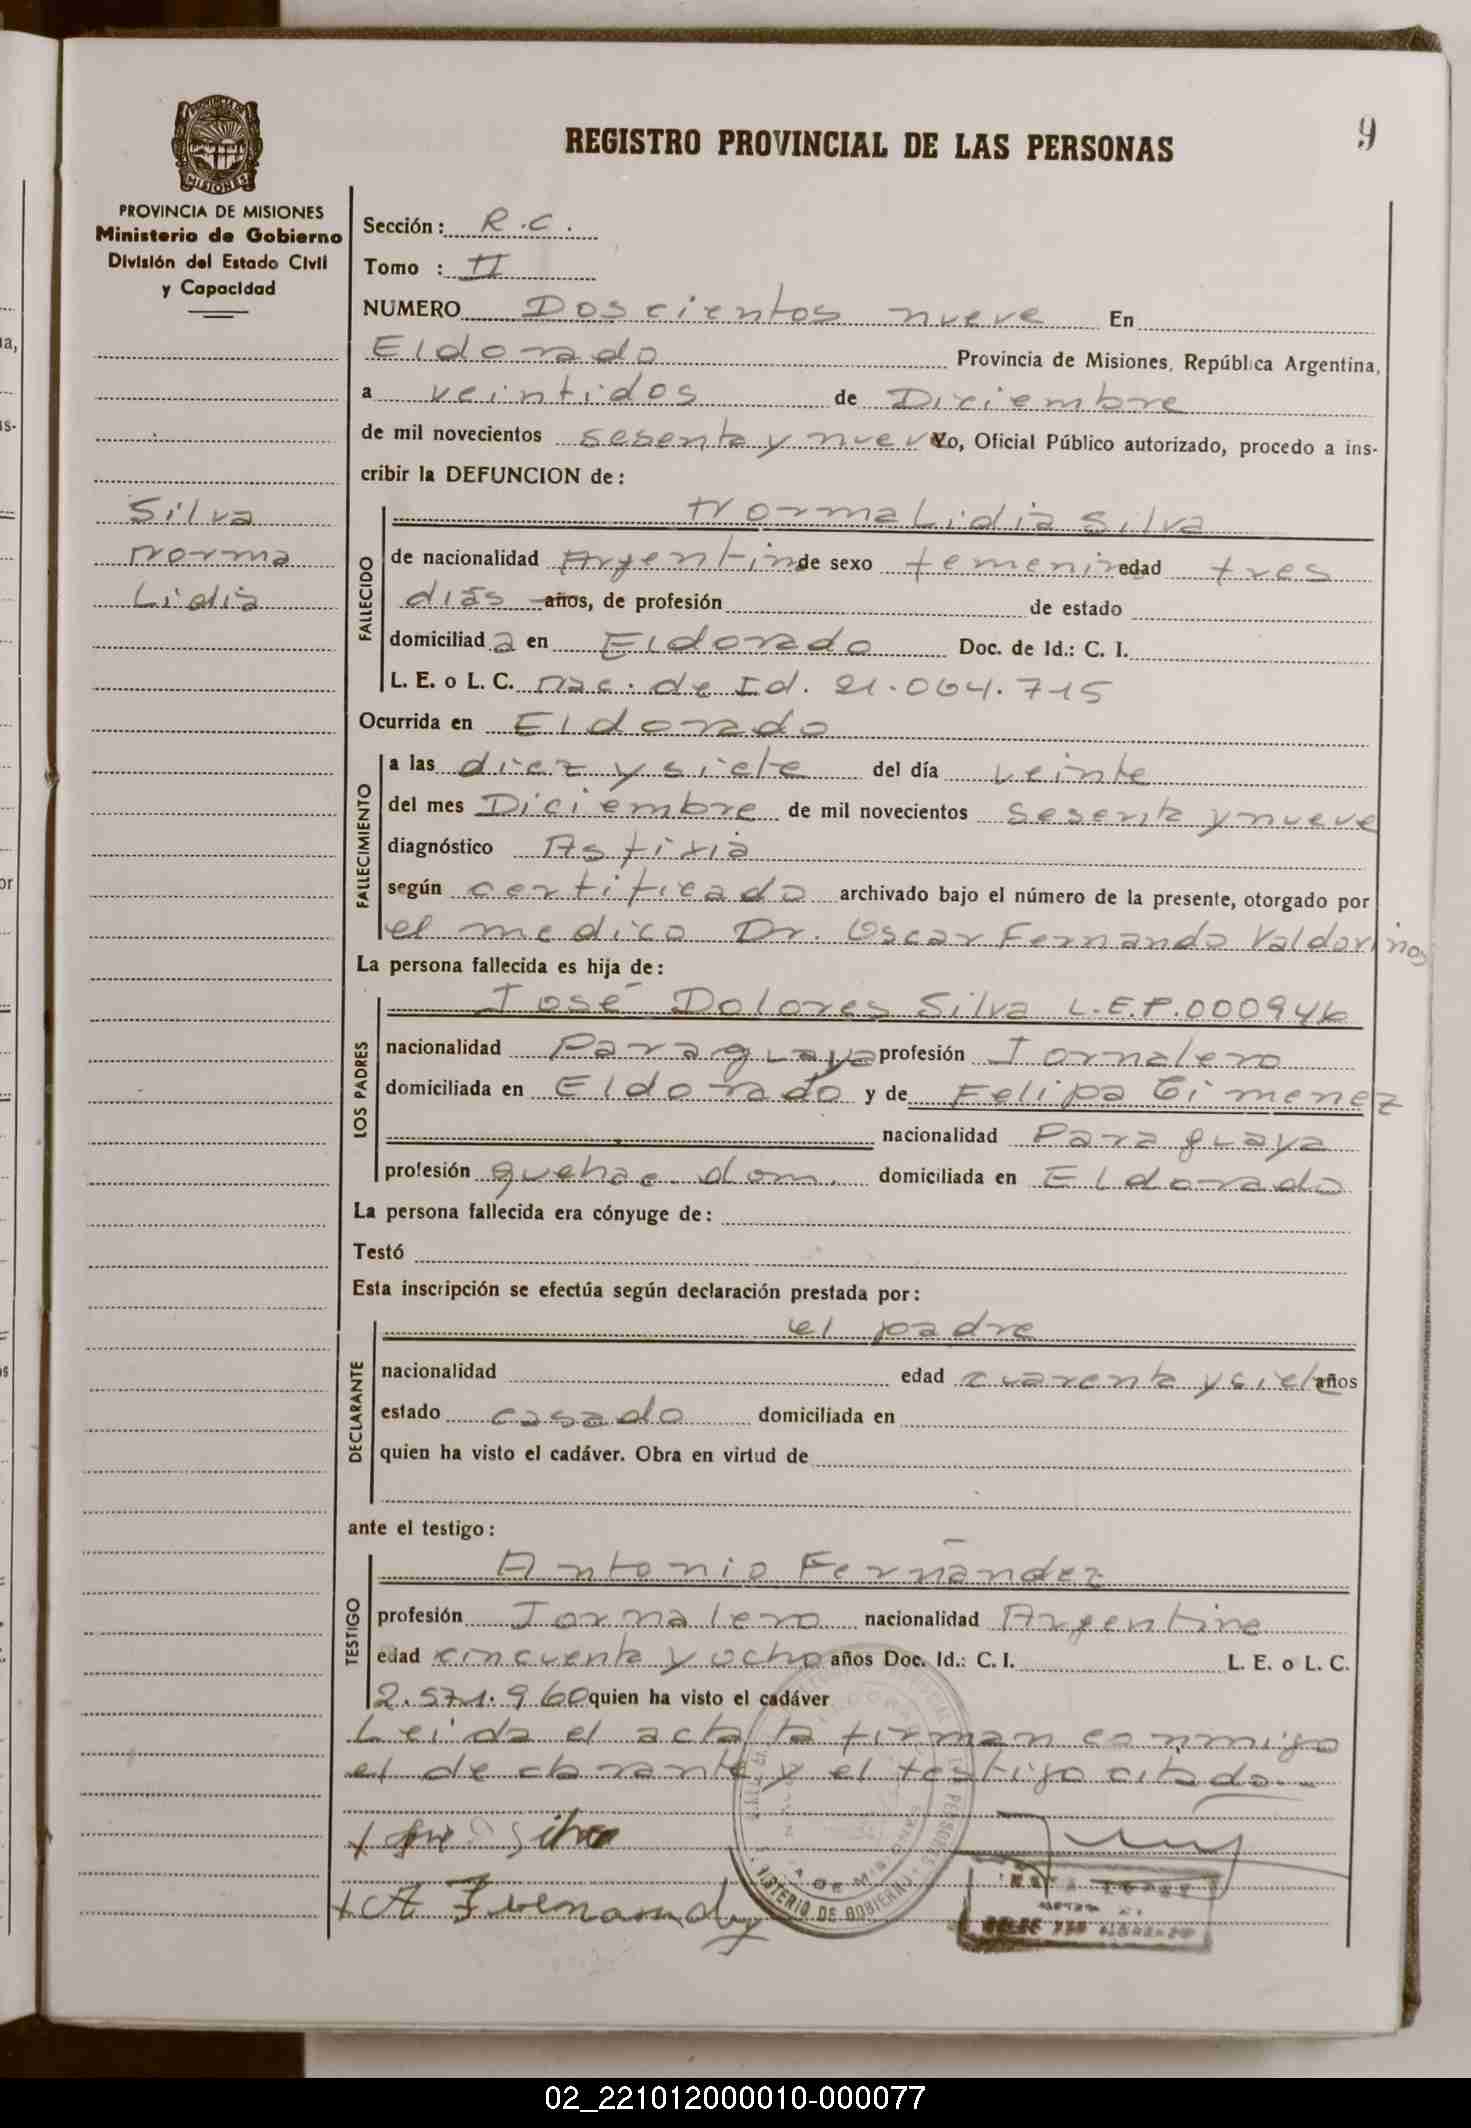 REGISTRO PROVINCIAL DE LAS PERSONAS
9
PROVINCIA DE MISIONES
Ministerio de Gobierno
División del Estado Civil
y Capacidad
Sección: R.C.
Tomo : II
NUMERO Doscientos nueve En
Eldorado Provincia de Misiones, República Argentina,
a veintidos de Diciembre
de mil novecientos sesenta y nueve Yo, Oficial Público autorizado, procedo a ins-
cribir la DEFUNCION de:
Silva
Norma
Lidia
FALLECIDO
Norma Lidia Silva
de nacionalidad Argentina de sexo femenino edad tres
días años, de profesión de estado
domiciliad a en Eldorado Doc. de Id.: C. I.
L. E. o L. C. nac. de Id. 21.064.715
Ocurrida en Eldorado
FALLECIMIENTO
a las diez y siete del día veinte
del mes Diciembre de mil novecientos sesenta y nueve
diagnóstico Asfixia
según certificado archivado bajo el número de la presente, otorgado por
el medico Dr. Oscar Fernando Valdovinos
La persona fallecida es hija de:
LOS PADRES
José Dolores Silva L.E.P.000946
nacionalidad Paraguaya profesión Jornalero
domiciliada en Eldorado y de Felipa Gimenez
nacionalidad Paraguaya
profesión quehac. dom. domiciliada en Eldorado
La persona fallecida era cónyuge de:
Testó
Esta inscripción se efectúa según declaración prestada por:
DECLARANTE
el padre
nacionalidad edad cuarenta y siete años
estado casado domiciliada en
quien ha visto el cadáver. Obra en virtud de
ante el testigo:
TESTIGO
Antonio Fernández
profesión Jornalero nacionalidad Argentina
edad cincuenta y ocho años Doc. Id.: C. I. L. E. o L. C.
2.571.960 quien ha visto el cadáver
Leida el acta la firman conmigo
el declarante y el testigo citado.-
Silva
A Fernandez
MINISTERIO DE GOBIERNO
02_221012000010-000077